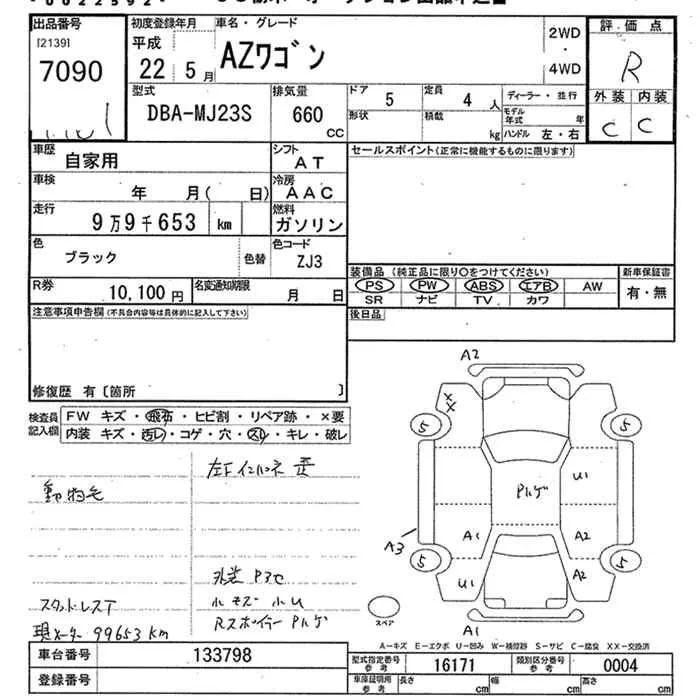 0022592
出品番号
[2139]
7090
初度登録年月
平成
22年5月
車名・グレード
AZワゴン
2WD
・
4WD
評価点
R
外装 内装
C C
型式
DBA-MJ23S
排気量
660
CC
ドア
5
定員
4人
形状
積載
kg
ディーラー・並行
モデル年式 年
ハンドル 左・右
車歴
自家用
シフト
AT
セールスポイント(正常に機能するものに限ります)
車検
年 月( 日)
冷房
AAC
走行
9万9千653 km
燃料
ガソリン
色
ブラック
色替
色コード
ZJ3
装備品(純正品に限り○をつけてください)
PS PW ABS エアB AW
SR ナビ TV カワ
新車保証書
有・無
R券
10,100円
名変通知期限
月 日
後日品
注意事項申告欄(不具合内容等は具体的に記入して下さい)
修復歴 有〔箇所 〕
検査員記入欄
FW キズ・飛石・ヒビ割・リペア跡・×要
内装 キズ・汚レ・コゲ・穴・スレ・キレ・破レ
動物毛
スタッドレス下
現メーター 99653km
外装 Pヨゴ
小キズ 小U
Rスポイラー Pハゲ
A2
XX
5
5
Pハゲ
U1
A1
A2
A3
5
5
U1
A2
スペア
A1
A-キズ E-エクボ U-凹み W-補修跡 S-サビ C-腐食 XX-交換済
車台番号
133798
型式指定番号
参考
16171
類別区分番号
参考
0004
登録番号
車庫証明用
参考
長さ cm
幅 cm
高さ cm